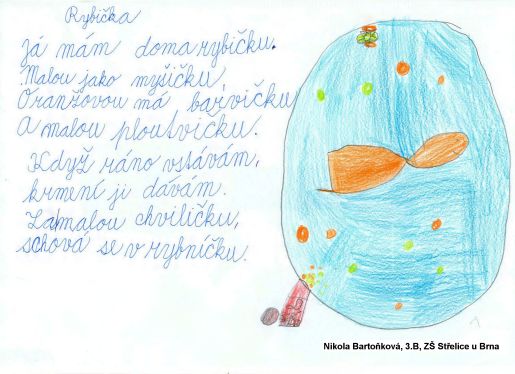 Rybička
Já mám doma rybičku.
Malou jako myšičku,
Oranžovou má barvičku
A malou ploutvičku.
Když ráno vstávám,
krmení ji dávám.
Za malou chviličku,
schová se v rybníčku.
Nikola Bartoňková, 3.B, ZŠ Střelice u Brna